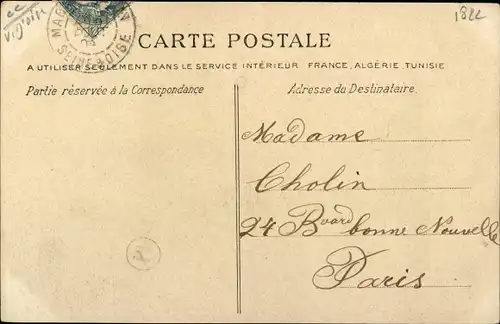 cc
V.d'oise
1822
MAG
SEINE & OISE
CARTE POSTALE
A UTILISER SEULEMENT DANS LE SERVICE INTÉRIEUR FRANCE, ALGÉRIE, TUNISIE
Partie réservée à la Correspondance
Adresse du Destinataire.
Madame
Cholin
24 Bvard bonne Nouvelle
Paris